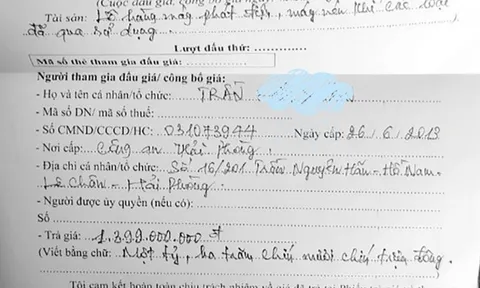 (Cuộc đấu giá, công bố giá
Tài sản: Lô hàng máy phát điện, máy nén khí các loại
đã qua sử dụng
Lượt đấu thứ:
Mã số thẻ tham gia đấu giá:
Người tham gia đấu giá/ công bố giá:
- Họ và tên cá nhân/tổ chức: TRẦN
- Mã số DN/ mã số thuế:
- Số CMND/CCCD/HC: 031073944 Ngày cấp: 26/6/2013
- Nơi cấp: Công an Hải Phòng
- Địa chỉ cá nhân/tổ chức: Số 16/201 Trần Nguyên Hãn - Hồ Nam -
Lê Chân - Hải Phòng
- Người được ủy quyền (nếu có):
Số
- Trả giá: 1.399.000.000 đ
(Viết bằng chữ: Một tỷ, ba trăm chín mươi chín triệu đồng.
Tôi cam kết hoàn toàn chịu trách nhiệm về giá đã trả tại Phiếu